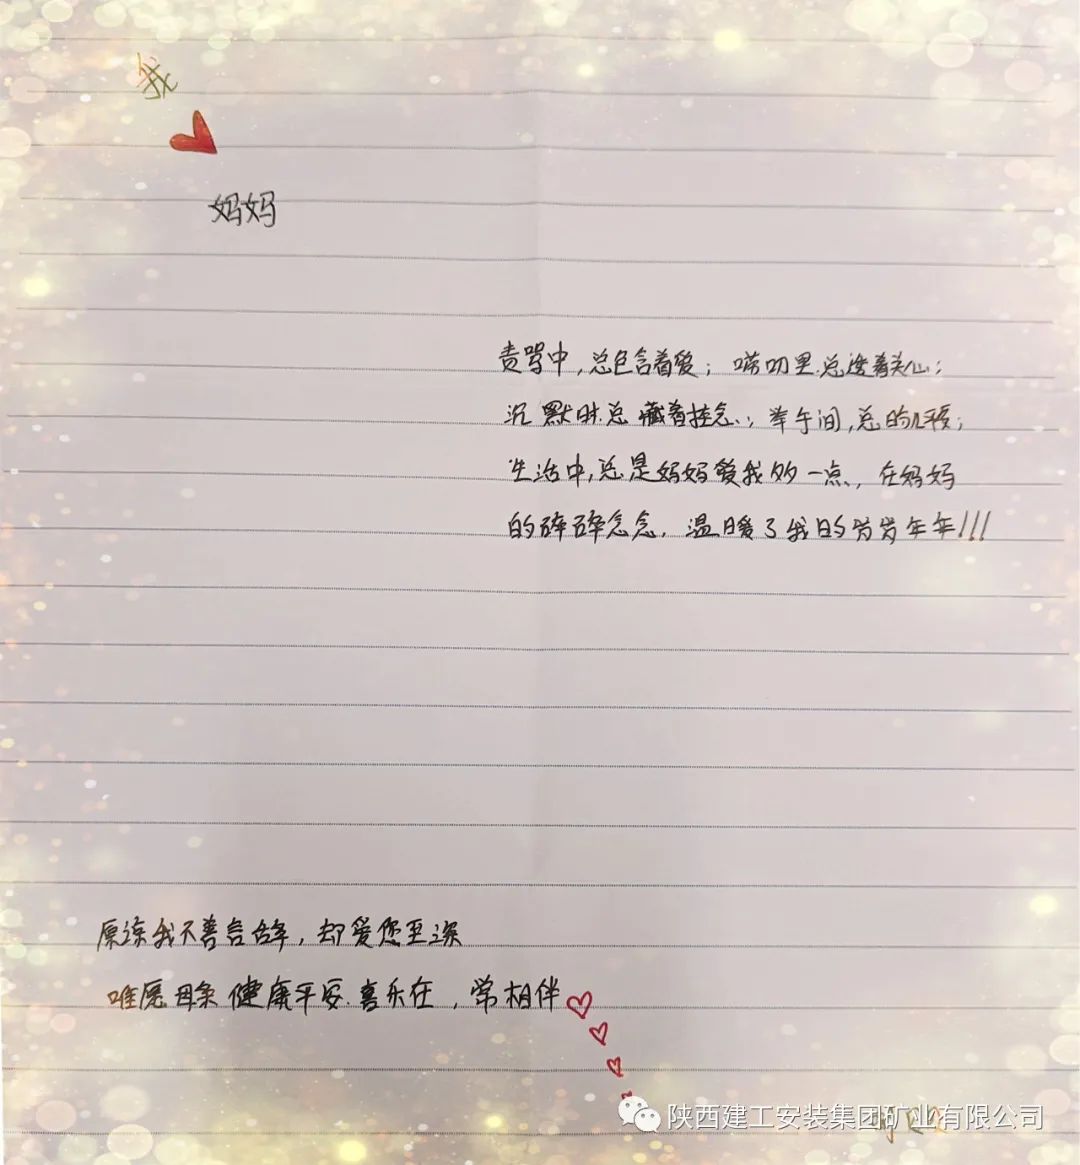 我
妈妈
责骂中，总包含着爱；唠叨里.总透着关心；
沉默时.总藏着挂念.；举手间,总
生活中,总是妈妈爱我多一点，在妈妈
的碎碎念念.温暖了我的岁岁年年!!!
原谅我不善言辞，却爱您至深
唯愿母亲健康平安.喜乐在，常相伴
陕西建工安装集团矿业有限公司